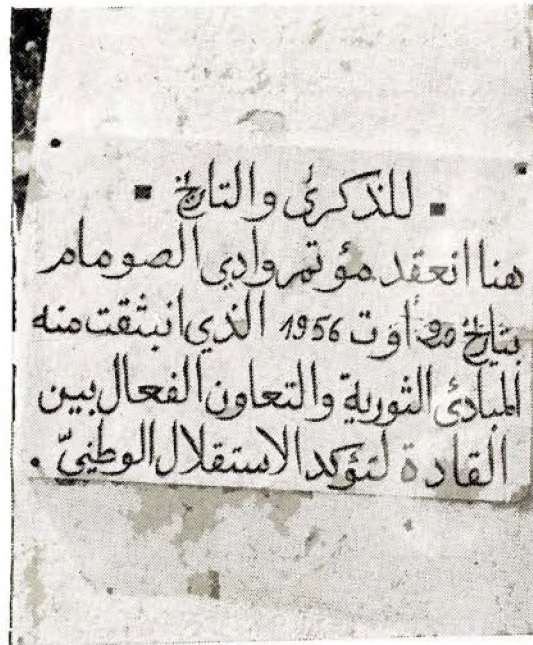 للذكرى والتاريخ
هنا انعقد مؤتمر وادي الصومام
بتاريخ 20 أوت 1956 الذي انبثقت منه
المبادئ الثورية والتعاون الفعال بين
القادة لتؤكد الاستقلال الوطنيّ.